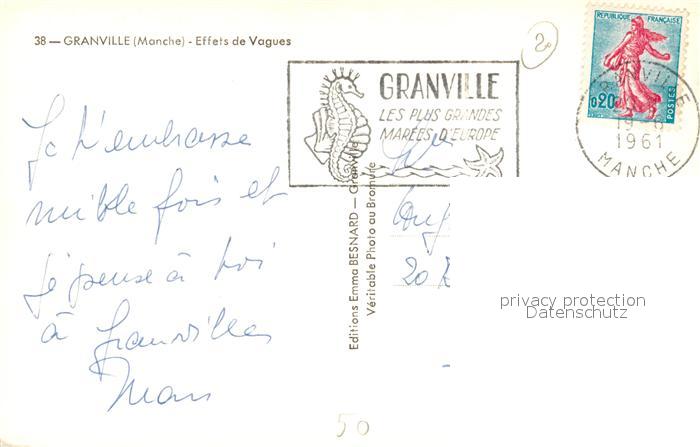 38 — GRANVILLE (Manche) - Effets de Vagues
20
GRANVILLE
LES PLUS GRANDES
MARÉES D'EUROPE
REPUBLIQUE FRANÇAISE
0,20
POSTES
19-8
1961
MANCHE
Je t'embrasse
mille fois et
je pense à toi
à Granville
Editions Emma BESNARD — Granville
Véritable Photo au Bromure
20
privacy protection
Datenschutz
50